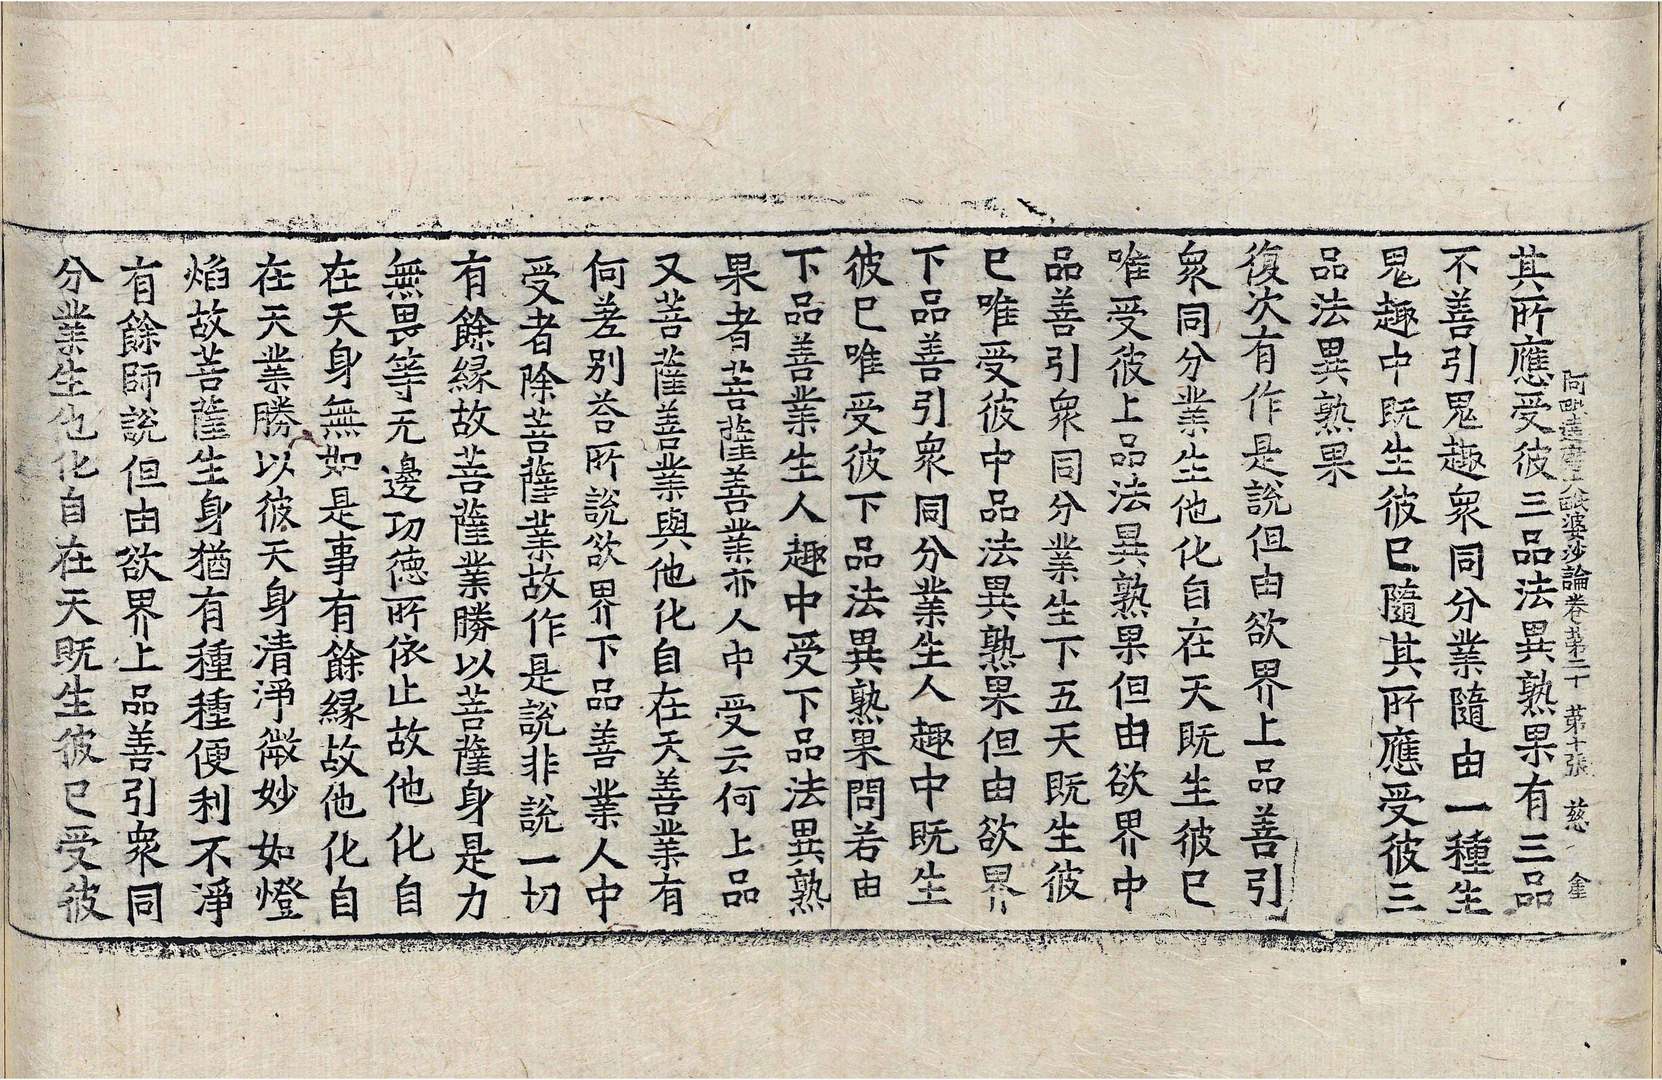 阿毗達磨大毗婆沙論卷第二十 第十張 慈 𨥥
其所應受彼三品法異熟果有三品
不善引鬼趣衆同分業隨由一種生
鬼趣中旣生彼巳隨其所應受彼三
品法異熟果
復次有作是說但由欲界上品善引
衆同分業生他化自在天旣生彼巳
唯受彼上品法異熟果但由欲界中
品善引衆同分業生下五天旣生彼
巳唯受彼中品法異熟果但由欲界
下品善引衆同分業生人趣中旣生
彼巳唯受彼下品法異熟果問若由
下品善業生人趣中受下品法異熟
果者菩薩善業亦人中受云何上品
又菩薩善業與他化自在天善業有
何差別荅所說欲界下品善業人中
受者除菩薩業故作是說非說一切
有餘緣故菩薩業勝以菩薩身是力
無畏等无邊功德所依止故他化自
在天身無如是事有餘緣故他化自
在天業勝以彼天身清淨微妙如燈
焰故菩薩生身猶有種種便利不淨
有餘師說但由欲界上品善引衆同
分業生他化自在天旣生彼巳受彼